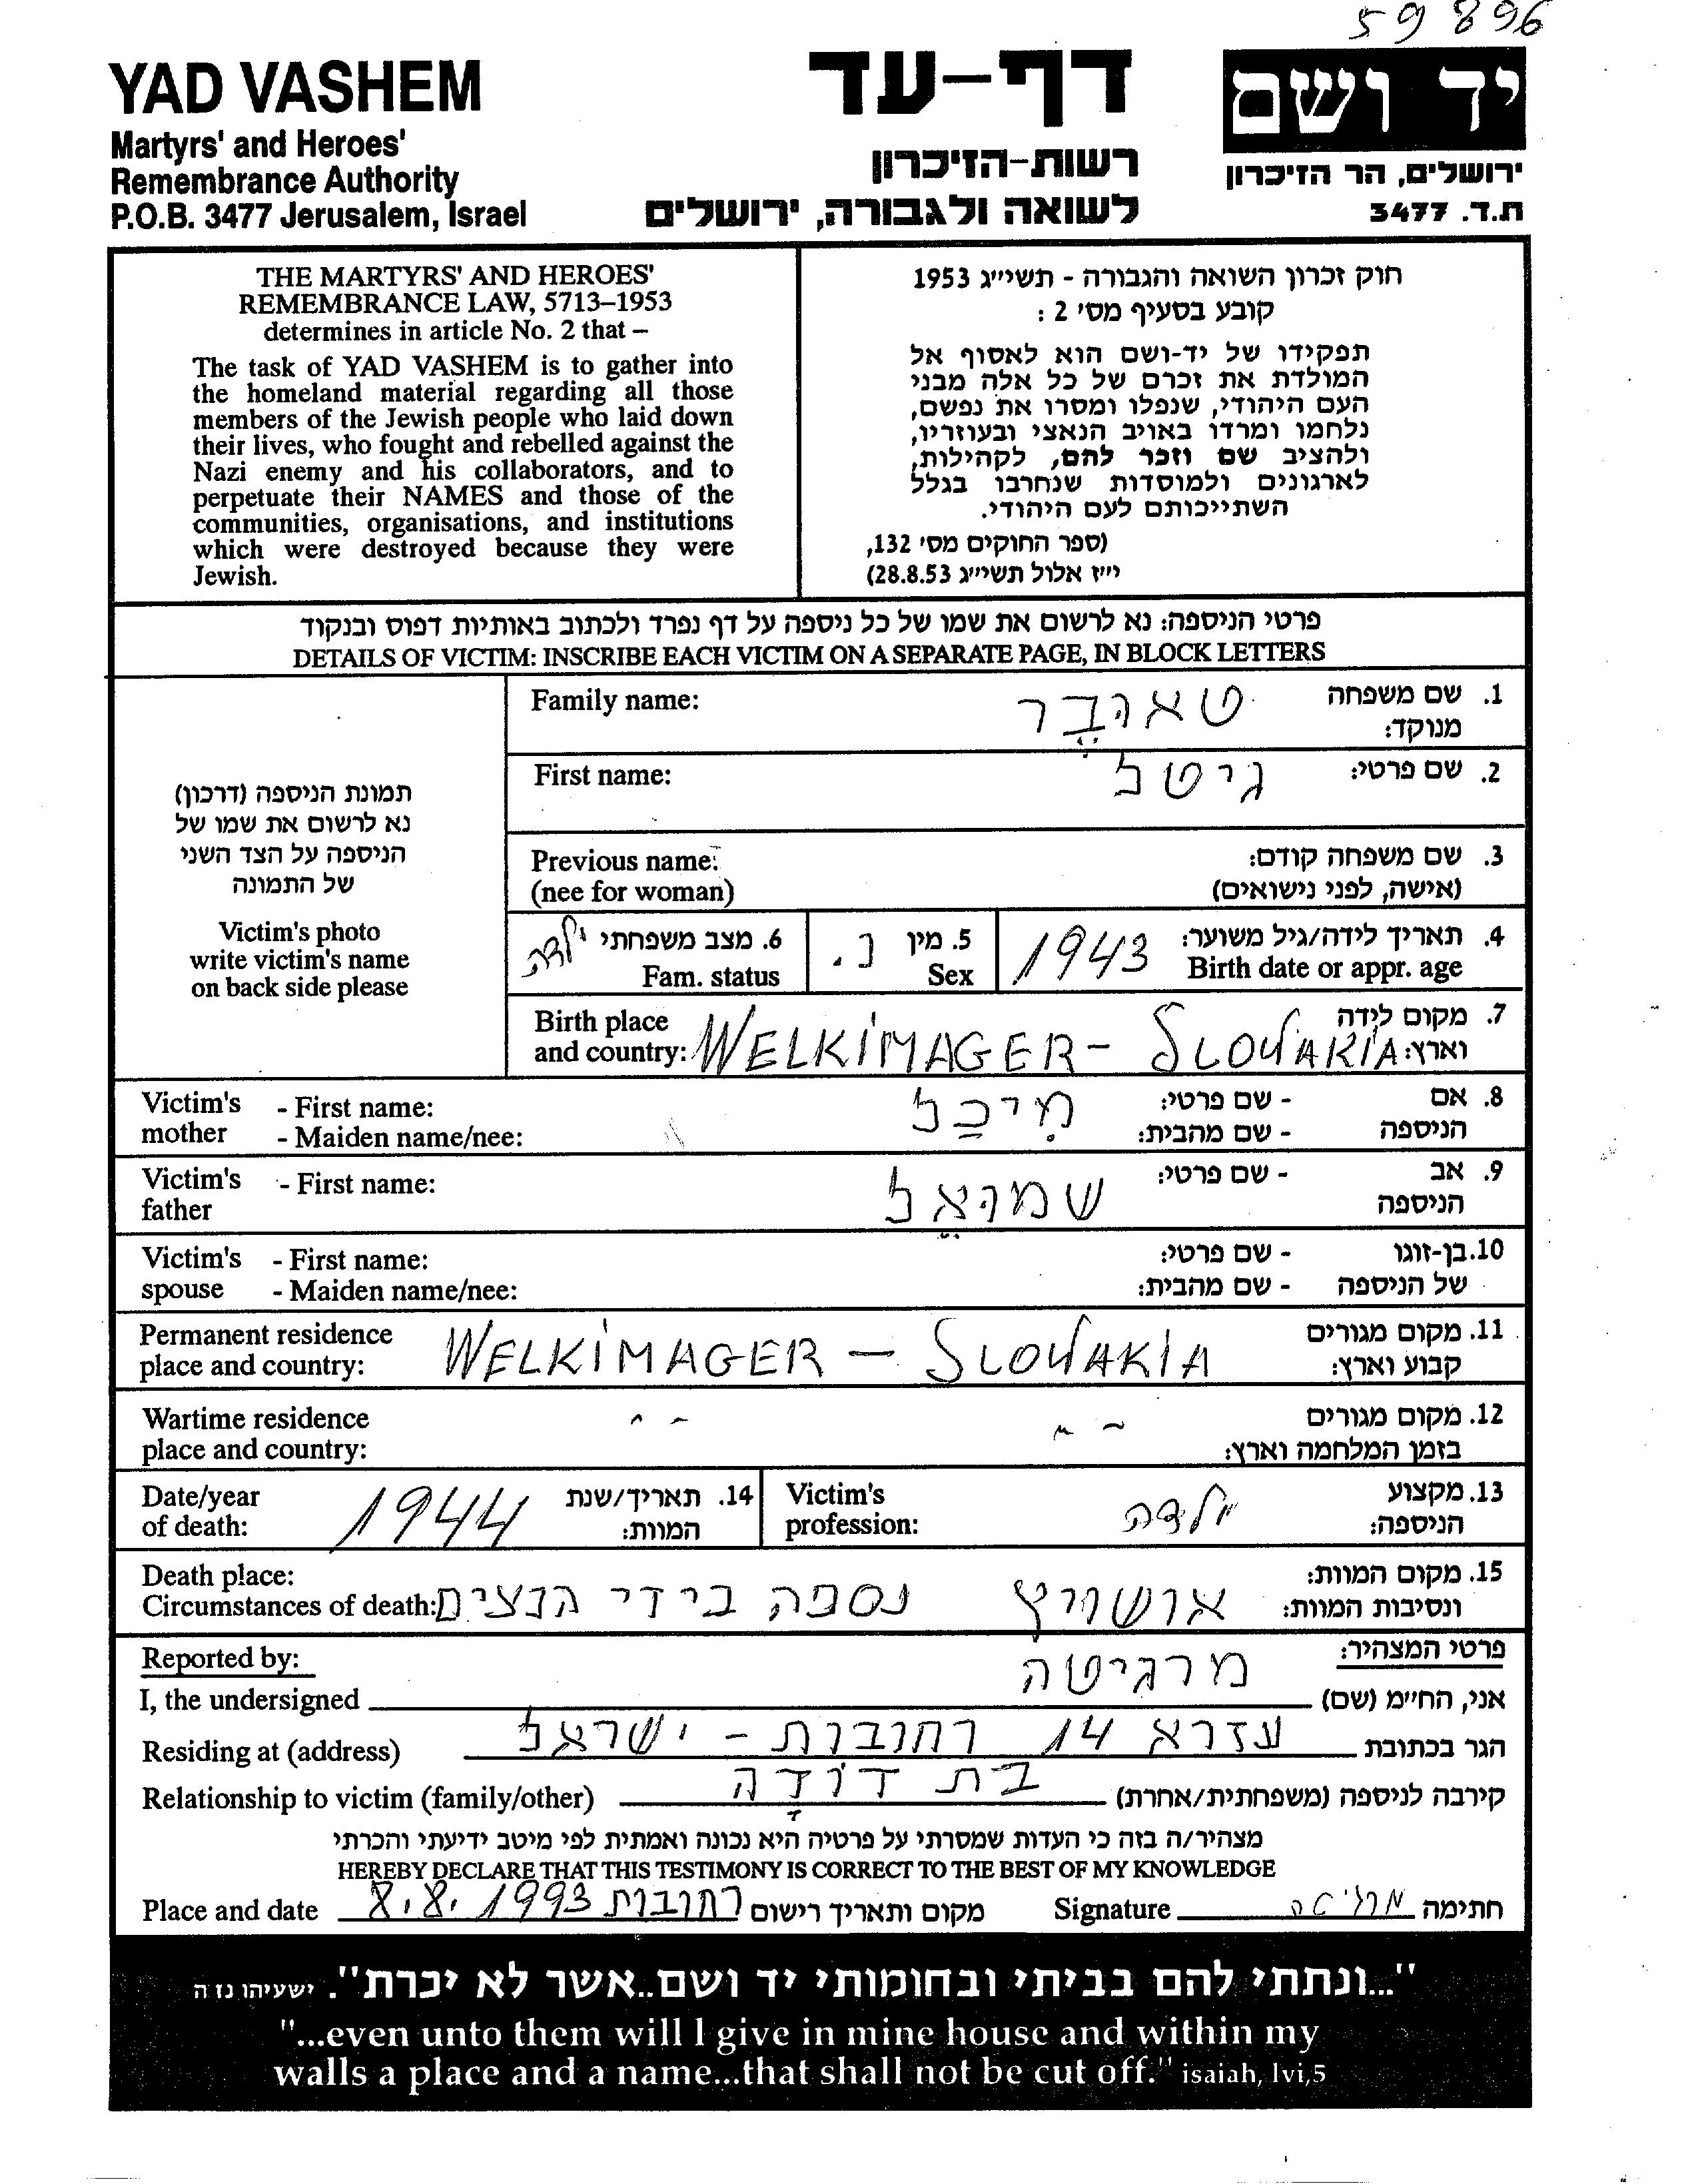 59896
YAD VASHEM
Martyrs' and Heroes'
Remembrance Authority
P.O.B. 3477 Jerusalem, Israel
דף-עד
רשות-הזיכרון
לשואה ולגבורה, ירושלים
יד ושם
ירושלים, הר הזיכרון
ת.ד. 3477
THE MARTYRS' AND HEROES'
REMEMBRANCE LAW, 5713–1953
determines in article No. 2 that –
The task of YAD VASHEM is to gather into
the homeland material regarding all those
members of the Jewish people who laid down
their lives, who fought and rebelled against the
Nazi enemy and his collaborators, and to
perpetuate their NAMES and those of the
communities, organisations, and institutions
which were destroyed because they were
Jewish.
חוק זכרון השואה והגבורה - תשי״ג 1953
קובע בסעיף מס׳ 2 :
תפקידו של יד-ושם הוא לאסוף אל
המולדת את זכרם של כל אלה מבני
העם היהודי, שנפלו ומסרו את נפשם,
נלחמו ומרדו באויב הנאצי ובעוזריו,
ולהציב שם וזכר להם, לקהילות,
לארגונים ולמוסדות שנחרבו בגלל
השתייכותם לעם היהודי.
(ספר החוקים מס׳ 132,
י״ז אלול תשי״ג 28.8.53)
פרטי הניספה: נא לרשום את שמו של כל ניספה על דף נפרד ולכתוב באותיות דפוס ובנקוד
DETAILS OF VICTIM: INSCRIBE EACH VICTIM ON A SEPARATE PAGE, IN BLOCK LETTERS
תמונת הניספה (דרכון)
נא לרשום את שמו של
הניספה על הצד השני
של התמונה
Victim's photo
write victim's name
on back side please
Family name: טאובֶּר 1. שם משפחה
מנוקד:
First name: גיטל 2. שם פרטי:
Previous name: 3. שם משפחה קודם:
(nee for woman) (אישה, לפני נישואים)
4. תאריך לידה/גיל משוער: 1943 5. מין נ. 6. מצב משפחתי ילדה
Birth date or appr. age Sex Fam. status
Birth place 7. מקום לידה
and country: WELKIMAGER - SLOVAKIA וארץ:
Victim's - First name: מִיכַל - שם פרטי: 8. אם
mother - Maiden name/nee: - שם מהבית: הניספה
Victim's - First name: שמוּאֵל - שם פרטי: 9. אב
father הניספה
Victim's - First name: - שם פרטי: 10. בן-זוגו
spouse - Maiden name/nee: - שם מהבית: של הניספה
Permanent residence 11. מקום מגורים
place and country: WELKIMAGER - SLOVAKIA קבוע וארץ:
Wartime residence - - - - 12. מקום מגורים
place and country: בזמן המלחמה וארץ:
Date/year 1944 14. תאריך/שנת Victim's ילדה 13. מקצוע
of death: המוות: profession: הניספה:
Death place: 15. מקום המוות:
Circumstances of death: אושויץ נספה בידי הנצים ונסיבות המוות:
Reported by: פרטי המצהיר:
I, the undersigned מרגיטה אני, הח״מ (שם)
Residing at (address) עזרא 14 רחובות - ישראל הגר בכתובת
Relationship to victim (family/other) בת דוֹדָה קירבה לניספה (משפחתית/אחרת)
מצהיר/ה בזה כי העדות שמסרתי על פרטיה היא נכונה ואמתית לפי מיטב ידיעתי והכרתי
HEREBY DECLARE THAT THIS TESTIMONY IS CORRECT TO THE BEST OF MY KNOWLEDGE
Place and date רחובות 8.8.1993 מקום ותאריך רישום Signature מרגיטה חתימה
"...ונתתי להם בביתי ובחומותי יד ושם..אשר לא יכרת". ישעיהו נו ה
"...even unto them will I give in mine house and within my
walls a place and a name...that shall not be cut off." isaiah, lvi,5